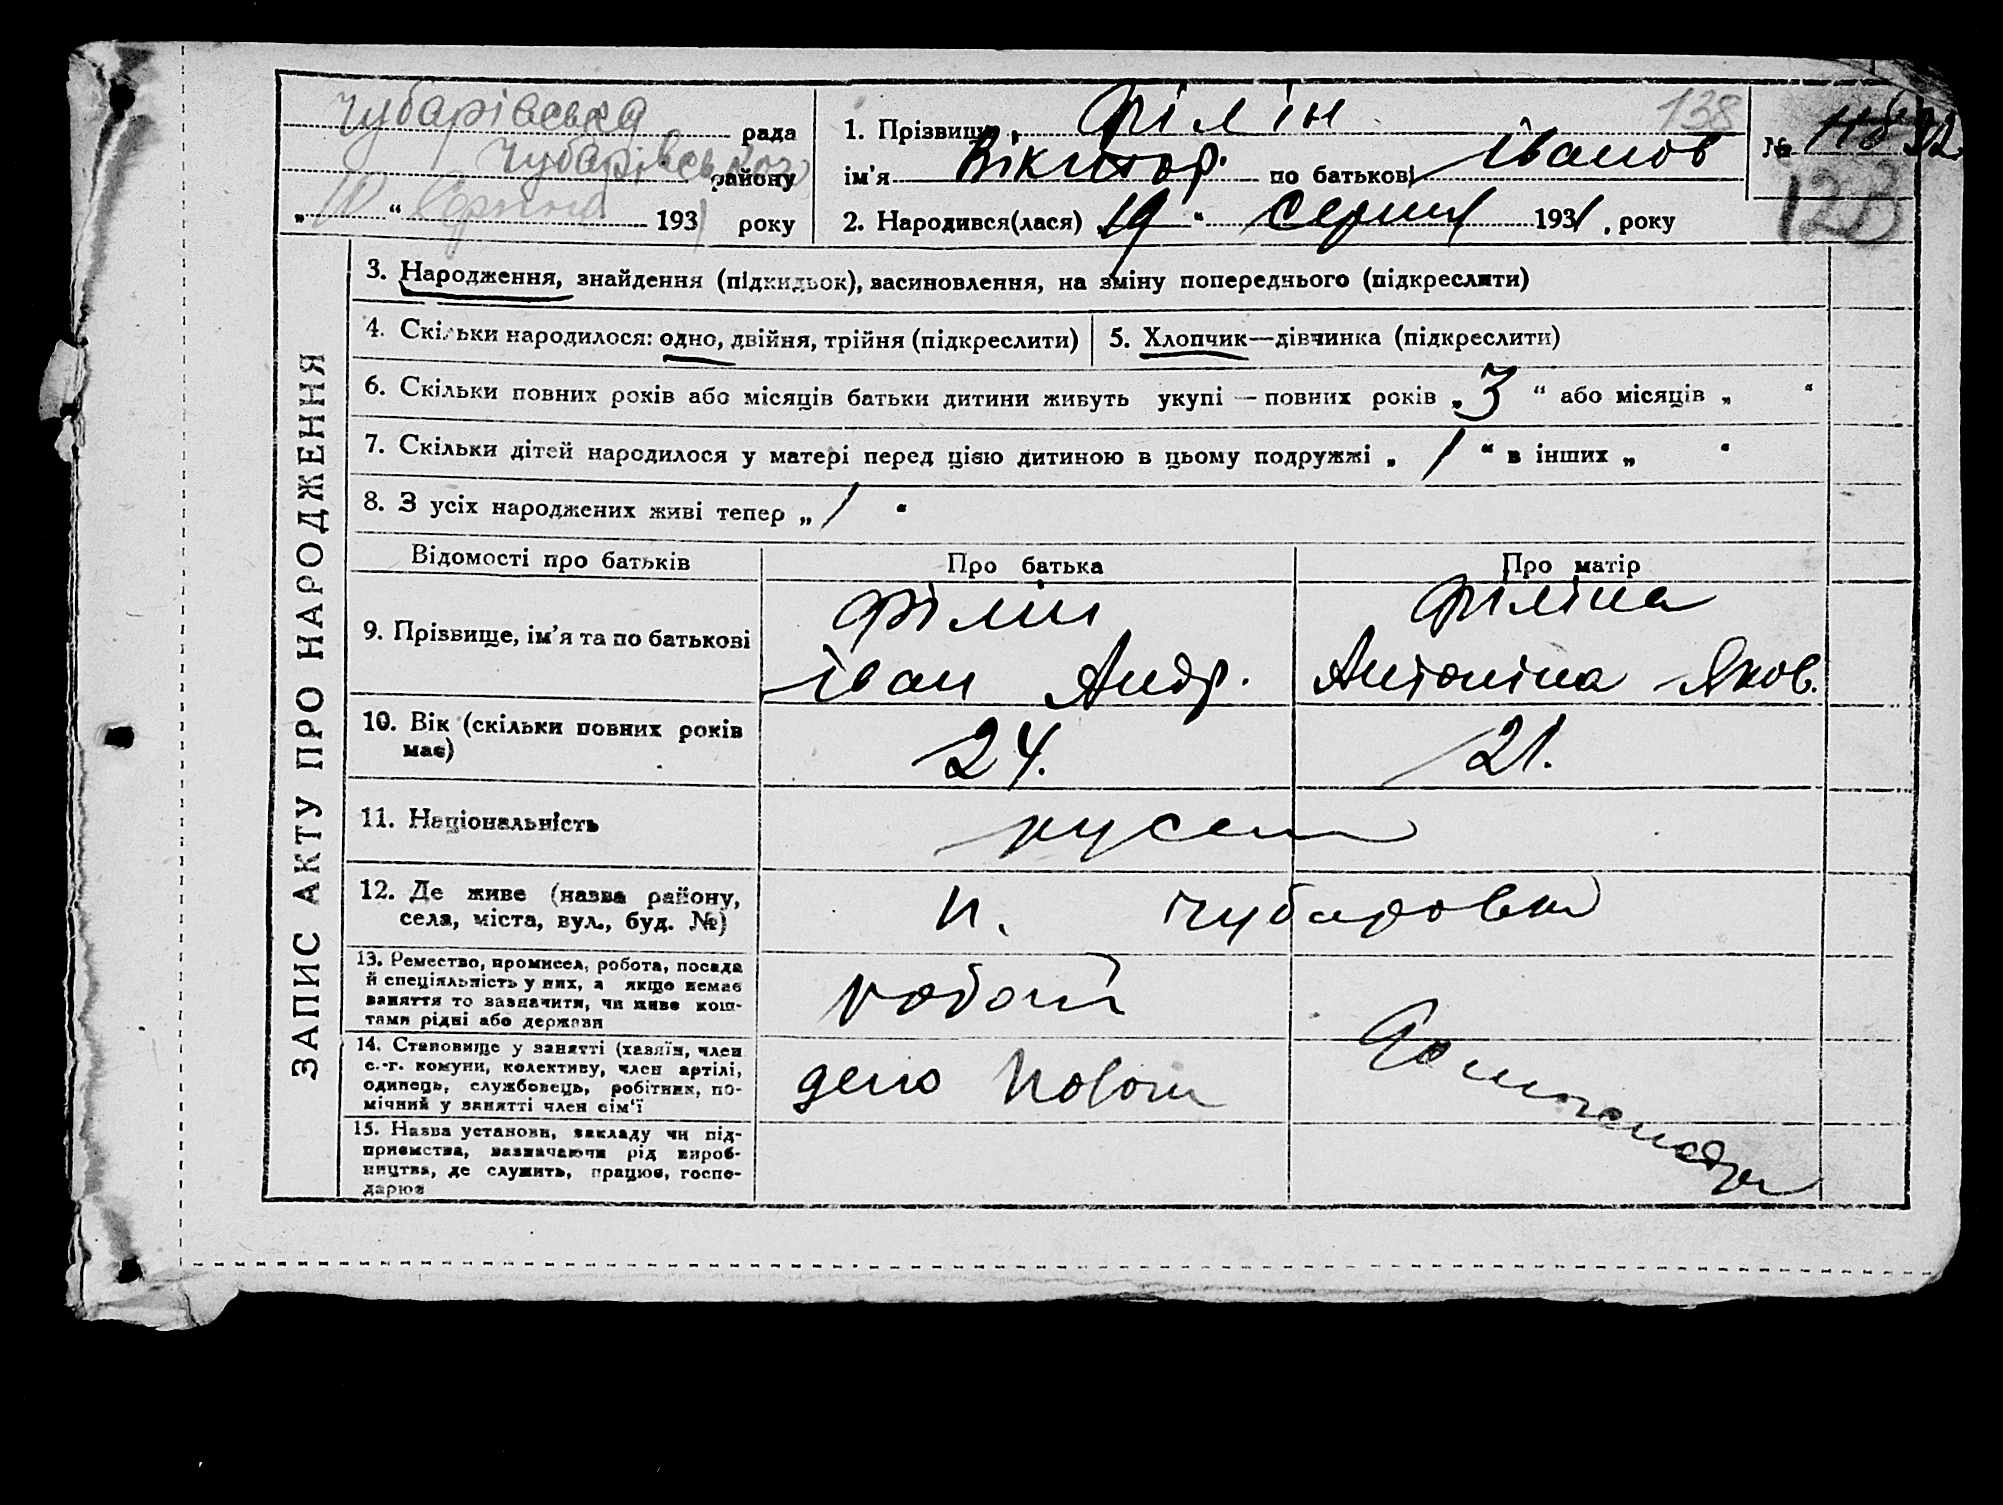 Чубарівська рада
Чубарівського району
„ “ Серпня 1931 року
1. Прізвище Філін 138
ім'я Віктор по батькові Іванов
2. Народився(лася) „19“ Серпня 1931, року
№ 118
123
ЗАПИС АКТУ ПРО НАРОДЖЕННЯ
3. Народження, знайдення (підкидьок), засиновлення, на зміну попереднього (підкреслити)
4. Скільки народилося: одно, двійня, трійня (підкреслити)
5. Хлопчик—дівчинка (підкреслити)
6. Скільки повних років або місяців батьки дитини живуть укупі — повних років „3“ або місяців „ “
7. Скільки дітей народилося у матері перед цією дитиною в цьому подружжі „1“ в інших „ “
8. З усіх народжених живі тепер „1“
Відомості про батьків Про батька Про матір
9. Прізвище, ім'я та по батькові
Філін
Іван Андр.
Філіна
Антоніна Яков.
10. Вік (скільки повних років
має)
24. 21.
11. Національність
12. Де живе (назва району,
села, міста, вул., буд. №)
п. Чубаровка
13. Ремество, промисел, робота, посада
й спеціяльність у них, а якщо немає
заняття то зазначити, чи живе кош-
тами рідні або держави
14. Становище у занятті (хазяїн, член
с.-г. комуни, колективу, член артілі,
одинець, службовець, робітник, по-
мічний у занятті член сім'ї
депо
15. Назва установи, закладу чи під-
приємства, зазначаючи рід вироб-
ництва, де служить, працює, госпо-
дарює